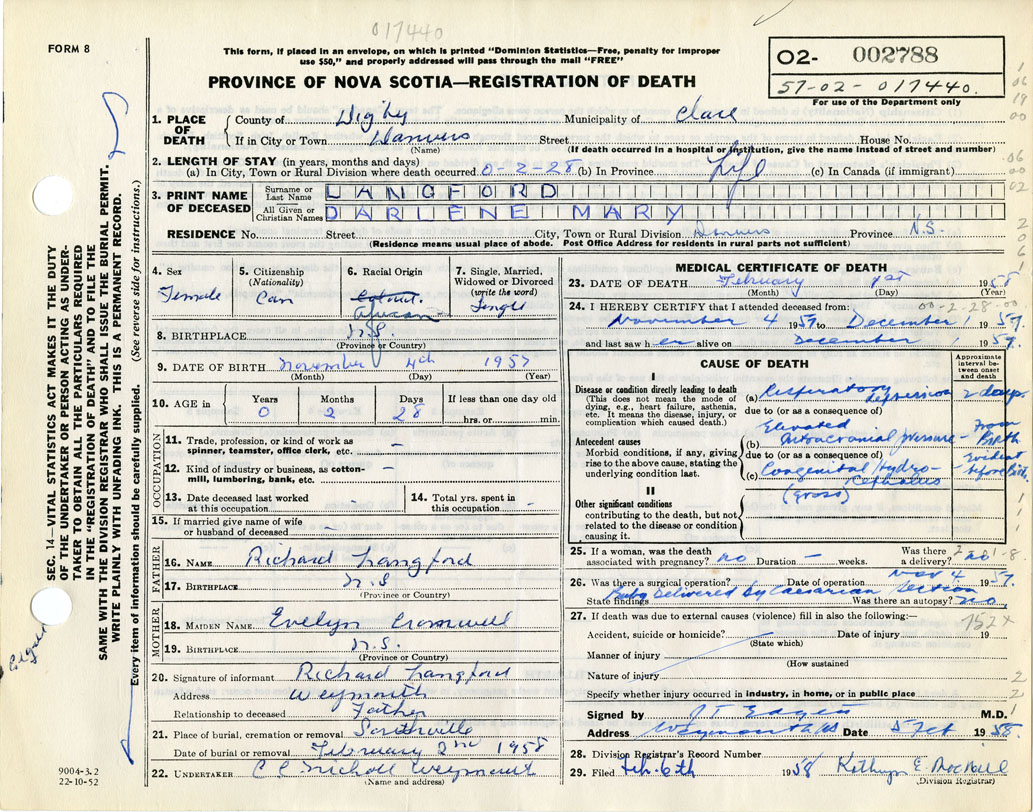 017440
FORM 8
This form, if placed in an envelope, on which is printed "Dominion Statistics—Free, penalty for improper
use $50," and properly addressed will pass through the mail "FREE"
PROVINCE OF NOVA SCOTIA—REGISTRATION OF DEATH
02- 002788
57-02-017440.
For use of the Department only
1. PLACE OF DEATH
County of Digby Municipality of Clare
If in City or Town Danvers Street House No.
(Name) (If death occurred in a hospital or institution, give the name instead of street and number)
2. LENGTH OF STAY (in years, months and days)
(a) In City, Town or Rural Division where death occurred 0-2-28 (b) In Province Life (c) In Canada (if immigrant)
3. PRINT NAME OF DECEASED
Surname or Last Name LANGFORD
All Given or Christian Names DARLENE MARY
RESIDENCE No. Street City, Town or Rural Division Danvers Province N.S.
(Residence means usual place of abode. Post Office Address for residents in rural parts not sufficient)
4. Sex Female
5. Citizenship (Nationality) Can
6. Racial Origin African
7. Single, Married, Widowed or Divorced (write the word) Single
8. BIRTHPLACE N.S.
(Province or Country)
9. DATE OF BIRTH November 4th 1957
(Month) (Day) (Year)
10. AGE in Years Months Days If less than one day old
0 2 28 hrs. or min.
OCCUPATION
11. Trade, profession, or kind of work as spinner, teamster, office clerk, etc. -
12. Kind of industry or business, as cotton-mill, lumbering, bank, etc. -
13. Date deceased last worked at this occupation -
14. Total yrs. spent in this occupation -
15. If married give name of wife or husband of deceased -
FATHER
16. NAME Richard Langford
17. BIRTHPLACE N.S
MOTHER
18. MAIDEN NAME Evelyn Cromwell
19. BIRTHPLACE N.S.
(Province or Country)
20. Signature of informant Richard Langford
Address Weymouth
Relationship to deceased Father
21. Place of burial, cremation or removal Southville
Date of burial or removal February 2nd 1958
22. UNDERTAKER Weymouth
(Name and address)
MEDICAL CERTIFICATE OF DEATH
23. DATE OF DEATH February 1st 1958
(Month) (Day) (Year)
24. I HEREBY CERTIFY that I attended deceased from: 00-2-28-00
November 4 1957 to December 1 1957
and last saw her alive on December 1 1957.
CAUSE OF DEATH
Approximate interval between onset and death
I
Disease or condition directly leading to death
(This does not mean the mode of dying, e.g., heart failure, asthenia, etc. It means the disease, injury, or complication which caused death.)
(a) Respiratory depression 2 days
due to (or as a consequence of)
Antecedent causes
Morbid conditions, if any, giving rise to the above cause, stating the underlying condition last.
(b) Elevated intracranial pressure - From Birth
due to (or as a consequence of)
(c) Congenital Hydrocephalus - Evident before Birth
(Gross)
II
Other significant conditions
contributing to the death, but not related to the disease or condition causing it.
25. If a woman, was the death associated with pregnancy? no Duration - weeks. Was there a delivery? no
26. Was there a surgical operation? Date of operation Nov 4 1957.
State findings Baby Delivered By Caesarian Section Was there an autopsy? no
27. If death was due to external causes (violence) fill in also the following:—
752x
Accident, suicide or homicide? Date of injury 19
(State which)
Manner of injury
(How sustained
Nature of injury
Specify whether injury occurred in industry, in home, or in public place
Signed by M.D.
Address Weymouth NS Date 5 Feb 1958.
28. Division Registrar's Record Number
29. Filed Feb. 6th 1958 Kathryn E.
(Division Registrar)
SEC. 14—VITAL STATISTICS ACT MAKES IT THE DUTY
OF THE UNDERTAKER OR PERSON ACTING AS UNDER-
TAKER TO OBTAIN ALL THE PARTICULARS REQUIRED
IN THE "REGISTRATION OF DEATH" AND TO FILE THE
SAME WITH THE DIVISION REGISTRAR WHO SHALL ISSUE THE BURIAL PERMIT.
WRITE PLAINLY WITH UNFADING INK. THIS IS A PERMANENT RECORD.
Every item of information should be carefully supplied. (See reverse side for instructions.)
9004-3.2
22-10-52